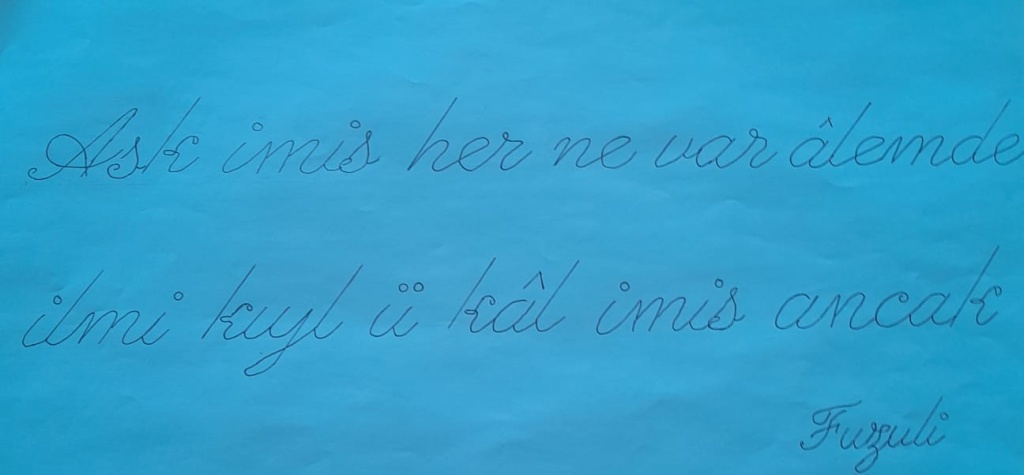 Ask imis her ne var âlemde
ilmi kıyl ü kâl imis ancak
Fuzuli